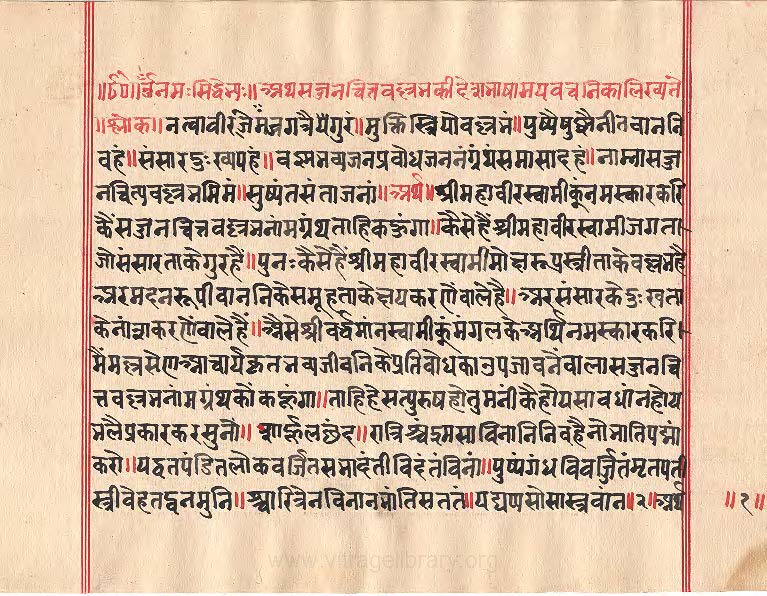 ॥ॐ नमः सिद्धेभ्यः॥ अथ सज्जनचित्तवल्लभकी देशभाषामय वचनिका लिख्यते
॥श्लोक॥ नत्वा वीरजिनं जगत्रयगुरुं॥ मुक्तिस्त्रियो वल्लभं॥ पुष्पेषु क्षयनीतबाननि
वहं॥ संसारदुःखापहं॥ वक्ष्ये भव्यजनप्रबोधजननं ग्रंथं समासादहं॥ नाम्ना सज्ज
नचित्तवल्लभमिमं॥ सृण्वंतु संतो जनां॥ अर्थ॥ श्रीमहावीरस्वामीकूं नमस्कारकरि
कैं सज्जनचित्तवल्लभनांमग्रंथ ताहि कहूंगा॥ कैसे हैं श्रीमहावीरस्वामी जगता
जो संसार ताके गुर हैं॥ पुनः कैसे हैं श्रीमहावीरस्वामी मोक्षरूप स्त्री ताके वल्लभ हैं
अर मदनरूपी बाननिके समूह ताके क्षय करणेंवाले है॥ अर संसारके दुःख ता
के नांश करणेंवाले हैं॥ अैसे श्रीवर्द्धमांनस्वामीकुं मंगलके अर्थि नमस्कार करि
मैं मल्लषेणाचार्य हूं ते भव्यजीवनिके प्रतिबोधका उपजावनेंवाला सज्जनचि
त्तवल्लभनाम ग्रंथकौं कहूंगा॥ ताहि हे सत्पुरुष हो तुमनीकै होय सावधांन होय
भलैप्रकार कर सुनौ॥ शार्दूल छंद॥ रात्रिश्चंद्रमसा विनानिनिवहैर्नो भाति पद्मां
करो॥ यद्वत्पंडितलोकवर्जितसभा दंतीव दंतं विनां॥ पुष्पं गंधविवर्जितं मृतपती
स्त्री वेह तद्वन्मुनि॥ श्चारित्रेन विना न भांति सततं॥ यद्यप्यसौ सास्त्रवांन॥२॥ अर्थ
॥१॥
www.vitragelibrary.org